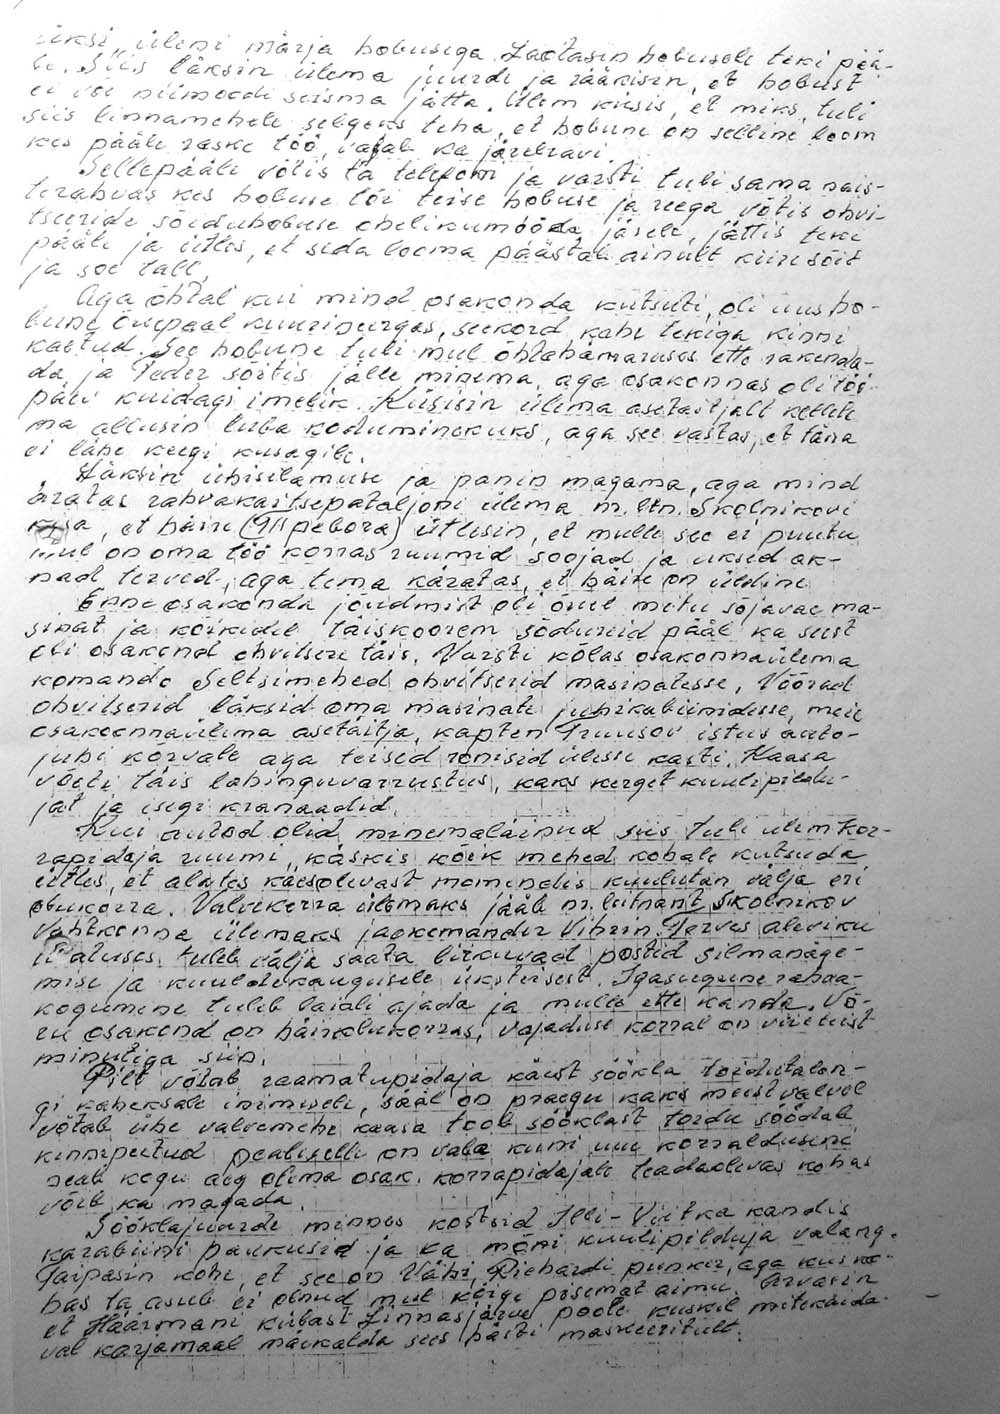 üksi, üleni märja hobusega. Laotasin hobusele teki pää-
le. Siis läksin ülema juurde ja rääkisin, et hobust
ei või niimoodi seisma jätta. Ülem küsis, et miks, tuli
siis linnamehele selgeks teha, et hobune on selline loom
kes pääle raske töö, vajab ka järelravi.
Sellepääle võtis ta telefoni ja varsti tuli sama nais-
terahvas kes hobuse tõi teise hobuse ja reega võtis ohvi-
tseeride sõiduhobuse ohelikumööda järele, jättis teki
pääle ja ütles, et seda looma päästab ainult kiire sõit
ja soe tall.
Aga õhtal kui mind osakonda kutsuti, oli uus ho-
bune õuepääl kuurinurgas, seekord kahe tekiga kinni
kaetud. See hobune tuli mul õhtahämaruses ette rakenda-
da ja Peder sõitis jälle minema, aga osakonnas oli töö-
päev kuidagi imelik. Küsisin ülema asetäitjalt kellele
ma allusin luba koduminekuks, aga see vastas, et täna
ei lähe keegi kusagile.
Läksin ühiselamuse ja panin magama, aga mind
äratas rahvakaitsepataljoni ülema m. ltn. Skolnikovi
käsa, et häire (Тревога) ütlesin, et mulle see ei puutu
mul on oma töö korras ruumid soojad ja uksed ak-
nad terved, aga tema käratas, et häire on üldine
Enne osakonda jõudmist oli õuel mitu sõjaväe ma-
sinat ja kõikidel täiskoorem sõdureid pääl ka seest
oli osakond ohvitsere täis. Varsti kõlas osakonnaülema
komando Seltsimehed ohvitserid masinatesse. Võõrad
ohvitserid läksid oma masinate juhikabiinidesse, meie
osakonnaülema asetäitja, kapten Truusov istus auto-
juhi kõrvale aga teised ronisid ülesse kasti. Kaasa
võeti täis lahinguvarrustus, kaks kerget kuulipildu-
jat ja isegi kranaadid.
Kui autod olid minemaläinud siis tuli ülem kor-
rapidaja ruumi, käskis kõik mehed kohale kutsuda
ütles, et alates käesolevast momendis kuulutan välja eri
olukorra. Valvekorra ülemaks jääb m. leitnant Skolnikov
Vahtkonna ülemaks jaokomandör Vihrin. Terves aleviku
ulatuses tuleb välja saata liikuvad postid silmanäge-
mise ja kuuldekaugusele üksteisest. Igasugune rahva-
kogumine tuleb laiali ajada ja mulle ette kanda. Võ-
ru osakond on häireolukorras, vajaduse korral on viieteist
minutiga siin.
Pilt võtab raamatupidaja käest söökla toidutalon-
gi kaheksale inimesele, sääl on praegu kaks meest valvel
võtab ühe valvemehe kaasa toob sööklast toidu söödab
kinnipeetud pealiselle on vaba kuni uue korralduseni
peab kogu aeg olema osak. korrapidajale teadaolevas kohas
võib ka magada.
Sööklajuurde minnes kostsid Illi-Viitka kandis
karabiini paukusid ja ka mõni kuulipilduja valang.
Taipasin kohe, et see on Vähi, Richardi punker, aga kus ko-
has ta asub ei olnud mul kõige pisemat aimu. Arvasin
et Häärmani külast Linnasjärve poole kuskil mitekäida-
val karjamaal mäekalda sees hästi maskeeritult.